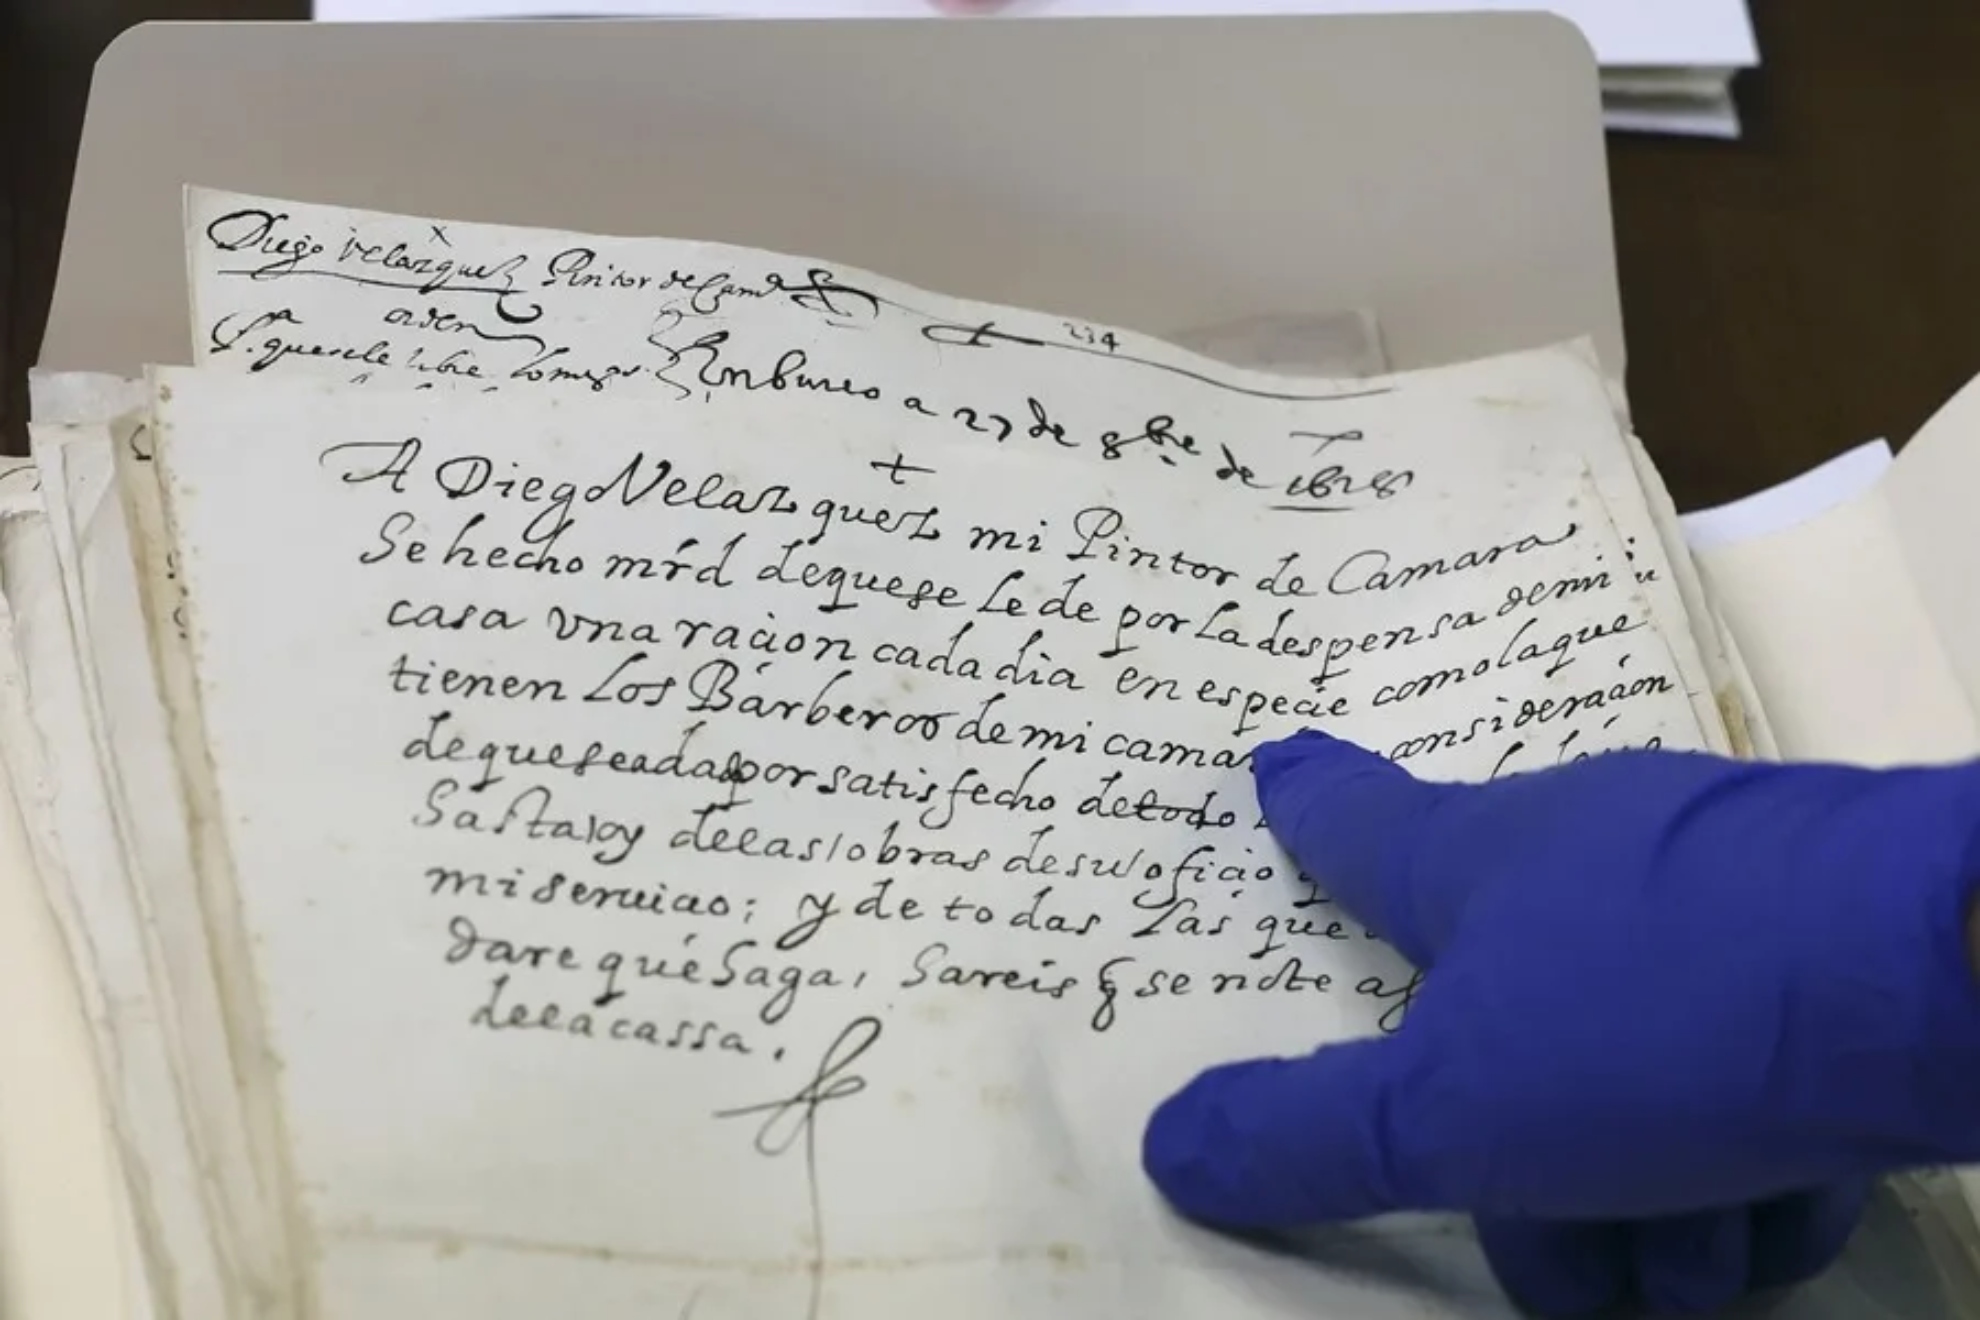 Diego Velazquez Pintor de Cam.ª
234
orden
P.ª que se le libre lo mismo
En bureo a 27 de 8bre de 1628
A Diego Velazquez mi Pintor de Camara
Se hecho mrd deque se Le de por La despensa de mi
casa vna racion cada dia en especie como la que
tienen Los Barberos de mi camar consideracion
de que se a dado por satisfecho de todo
Sasta oy de las obras de su oficio
mi seruicio; y de todas Las que
dare que Saga, Sareis q se note
de la cassa.